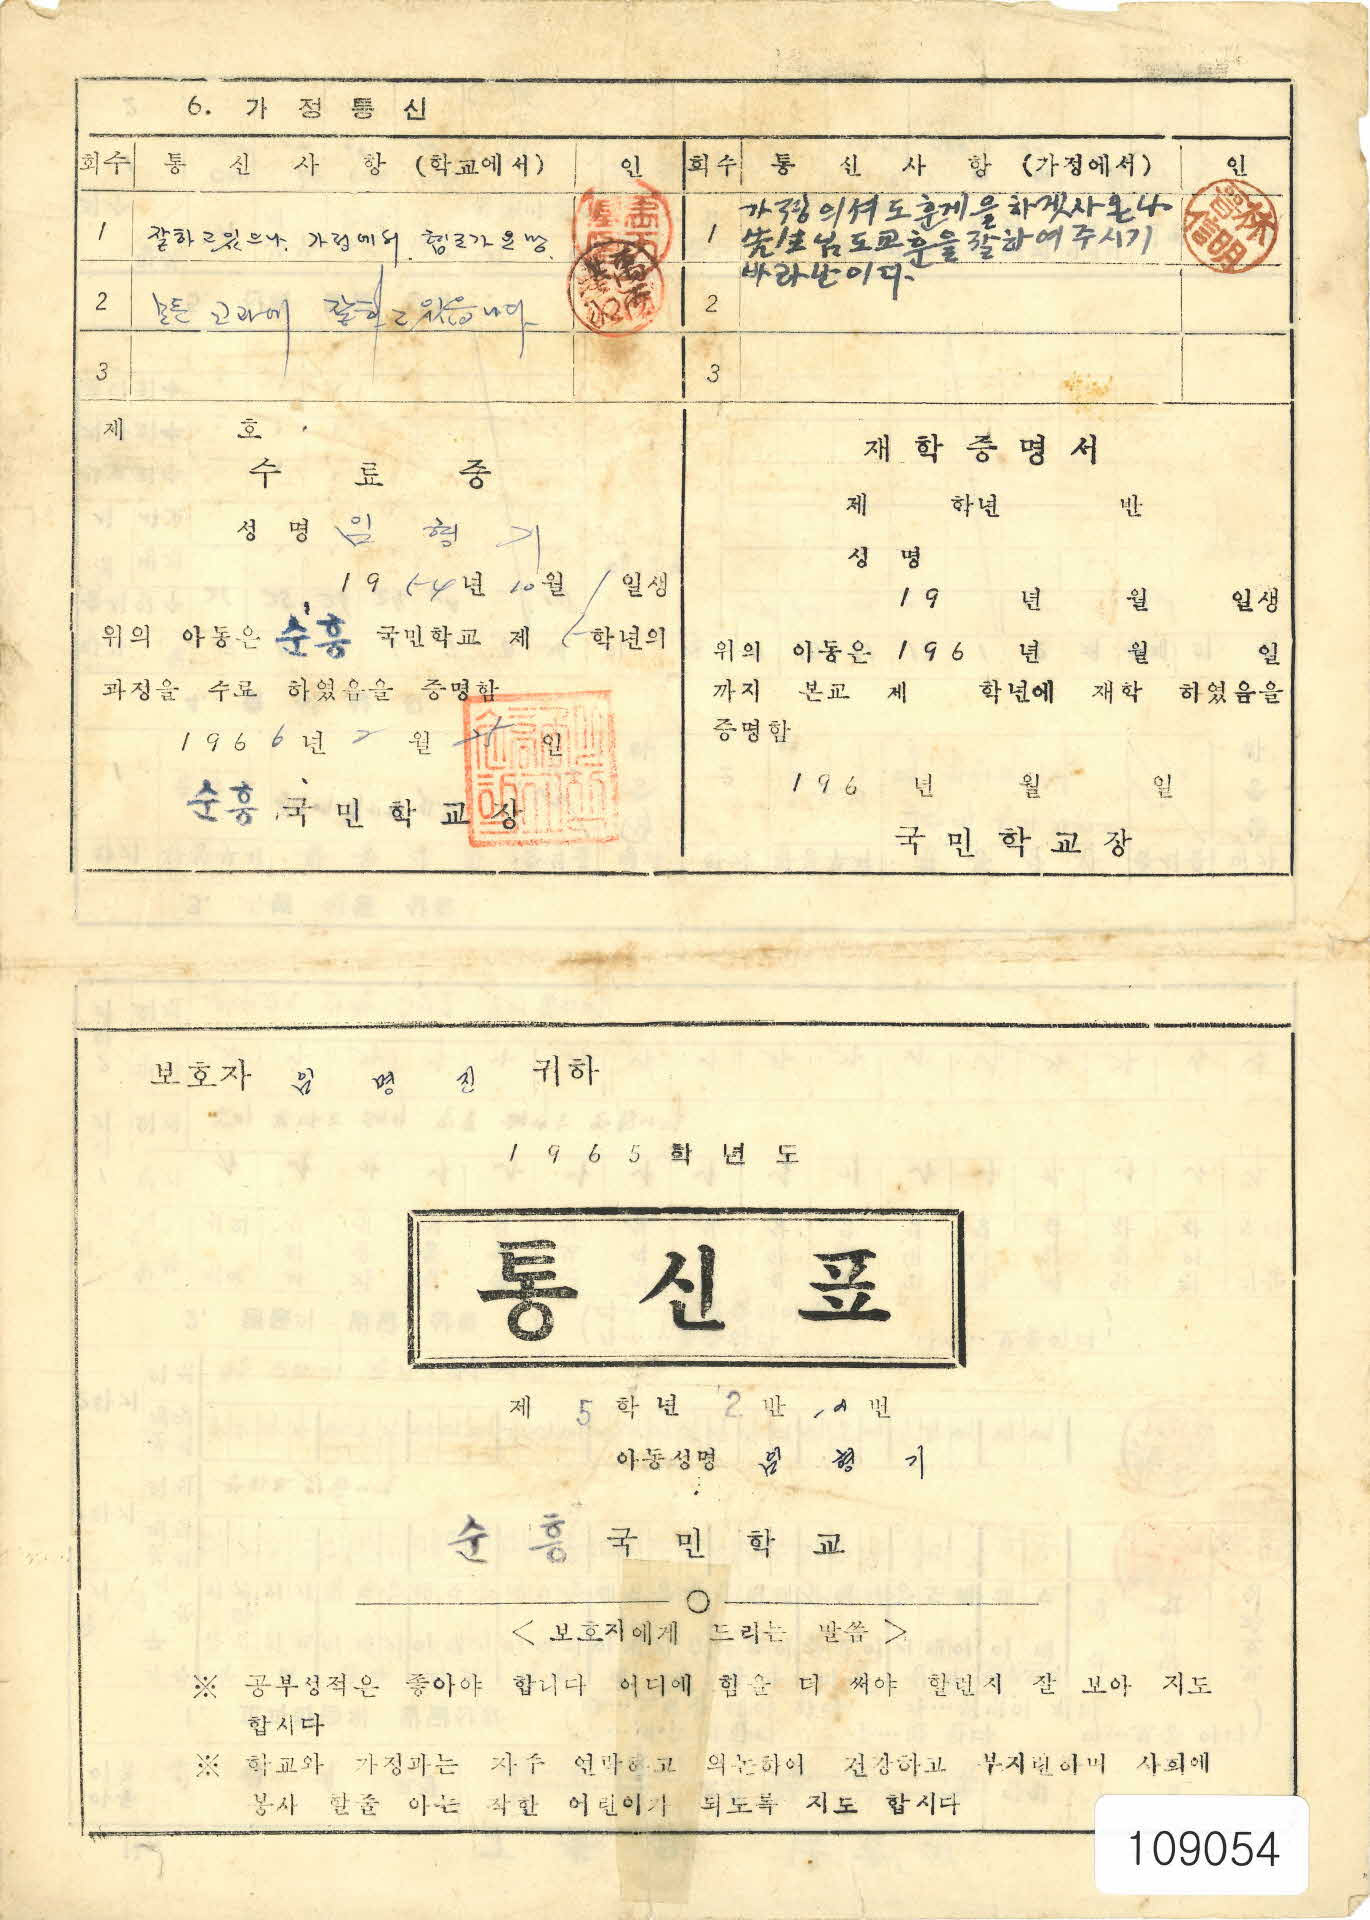 6. 가정통신
회수 통신사항 (학교에서) 인
1 잘하고있으나, 가정에서. 협조가 요망.
2 모든 교과에 잘하고 있읍니다.
3
회수 통신사항 (가정에서) 인
1 가정의셔도 훈게을 하겟사온나
先生님도 교훈을 잘하여 주시기
바라난이다.
2
3
제 호
수료증
성명 임형기
1954년 10월 1일생
위의 아동은 순흥 국민학교 제 5학년의
과정을 수료 하였음을 증명함
1966년 2월 인
순흥 국민학교장
재학증명서
제 학년 반
성명
19 년 월 일생
위의 아동은 196 년 월 일
까지 본교 제 학년에 재학 하였음을
증명함
196 년 월 일
국민학교장
보호자 임명진 귀하
1965학년도
통신표
제 5학년 2반 번
아동성명 임형기
순흥 국민학교
< 보호자에게 드리는 말씀 >
※ 공부성적은 좋아야 합니다 어디에 힘을 더 써야 할런지 잘 보아 지도
합시다
※ 학교와 가정과는 자주 연락하고 의논하여 건강하고 부지런하며 사회에
봉사 할줄 아는 착한 어린이가 되도록 지도 합시다
109054